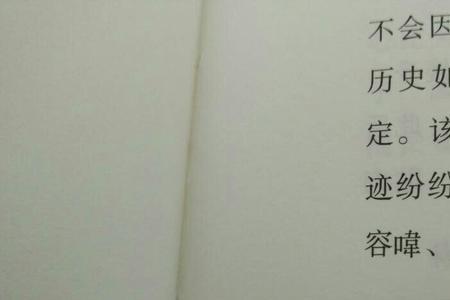 不会因
历史如
定。该
迹纷纷
容暐、